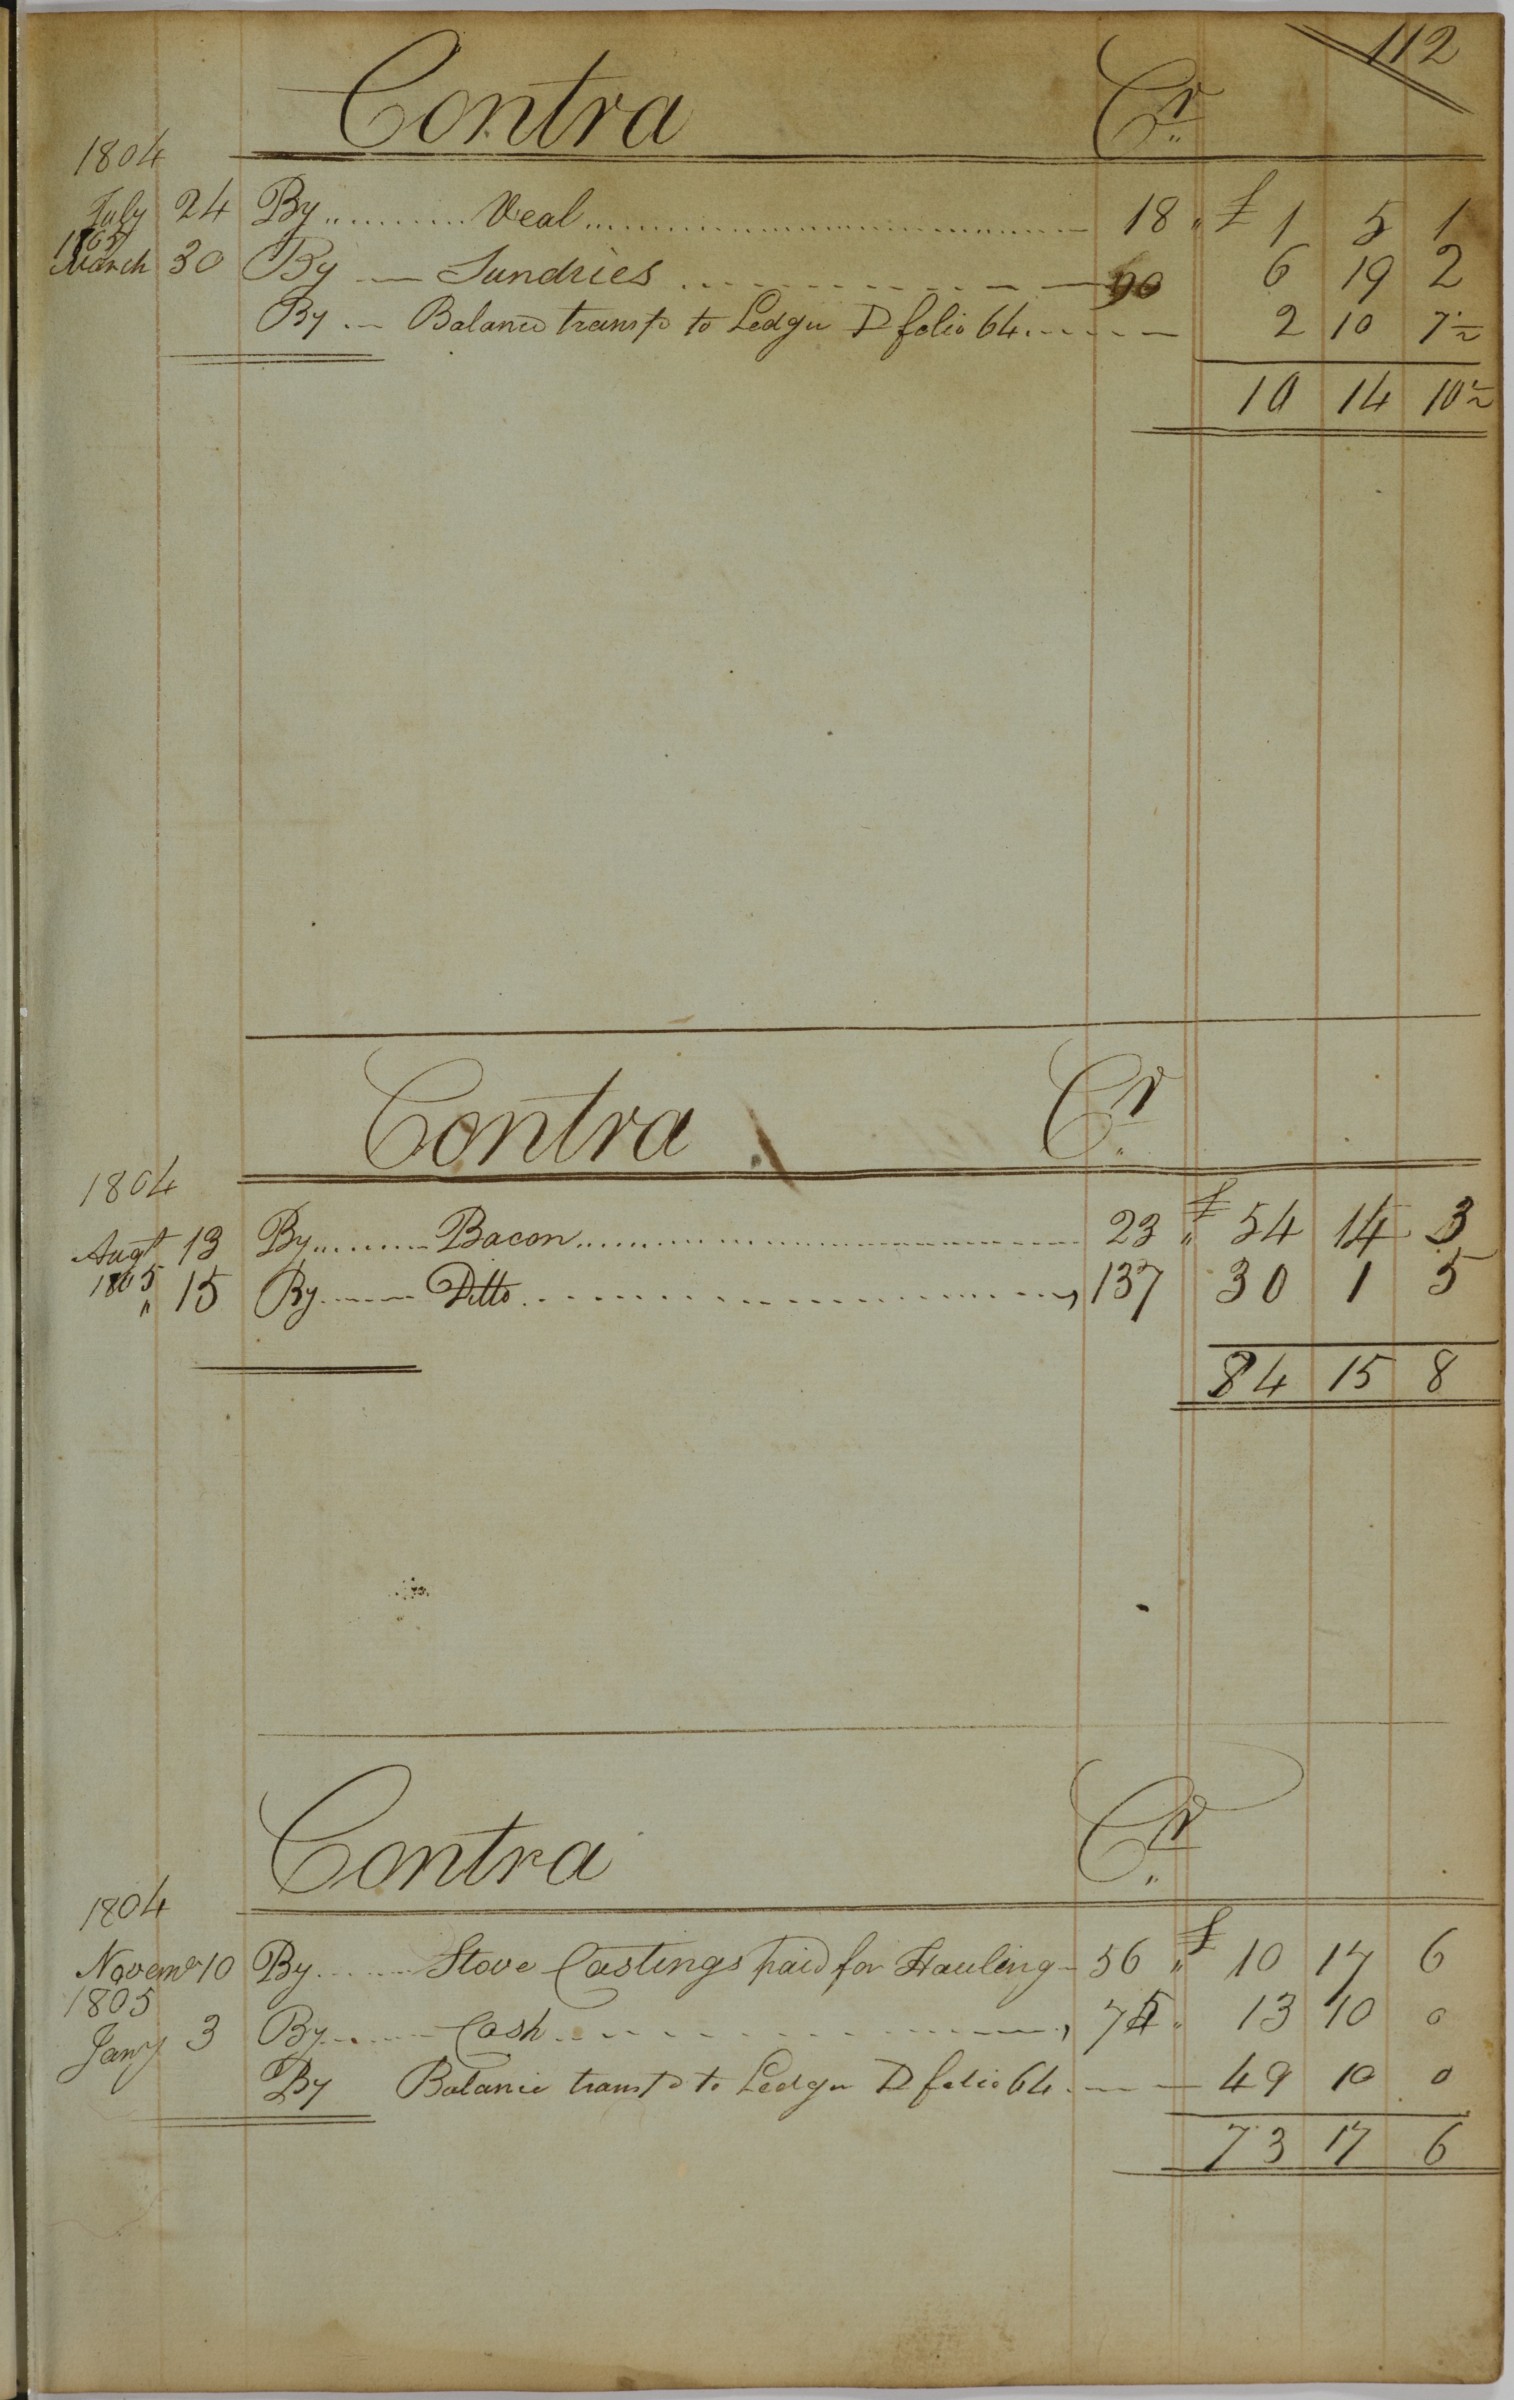 112
Contra Cr
1804
July 24 By Veal 18 " £ 1 5 1
1805
March 30 By Sundries 90 6 19 2
By Balance transfd to Ledger D folio 64 2 10 7½
10 14 10½
Contra Cr
1804
Augt 13 By Bacon 23 " £ 54 14 3
1805
" 15 By Ditto 137 30 1 5
84 15 8
Contra Cr
1804
Novemr 10 By Stove Castings paid for Hauling 56 " £ 10 17 6
1805
Jany 3 By Cash 75 " 13 10 0
By Balance transfd to Ledger D folio 64 49 10 0
73 17 6